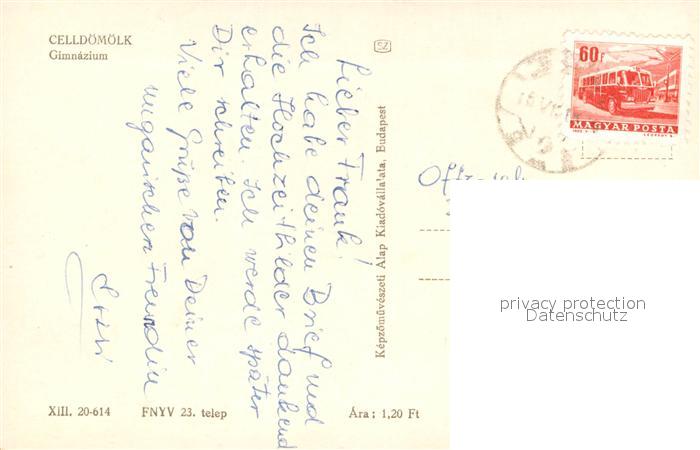 CELLDÖMÖLK
Gimnázium
Lieber Frank!
Ich habe deinen Brief und
die Hochzeitbilder dankend
erhalten. Ich werde später
Dir schreiben.
Viele Grüße von Deiner
ungarischen Freundin
SZ
Képzőművészeti Alap Kiadóvállalata, Budapest
60f
MAGYAR POSTA
XIII. 20-614 FNYV 23. telep Ára: 1,20 Ft
privacy protection
Datenschutz